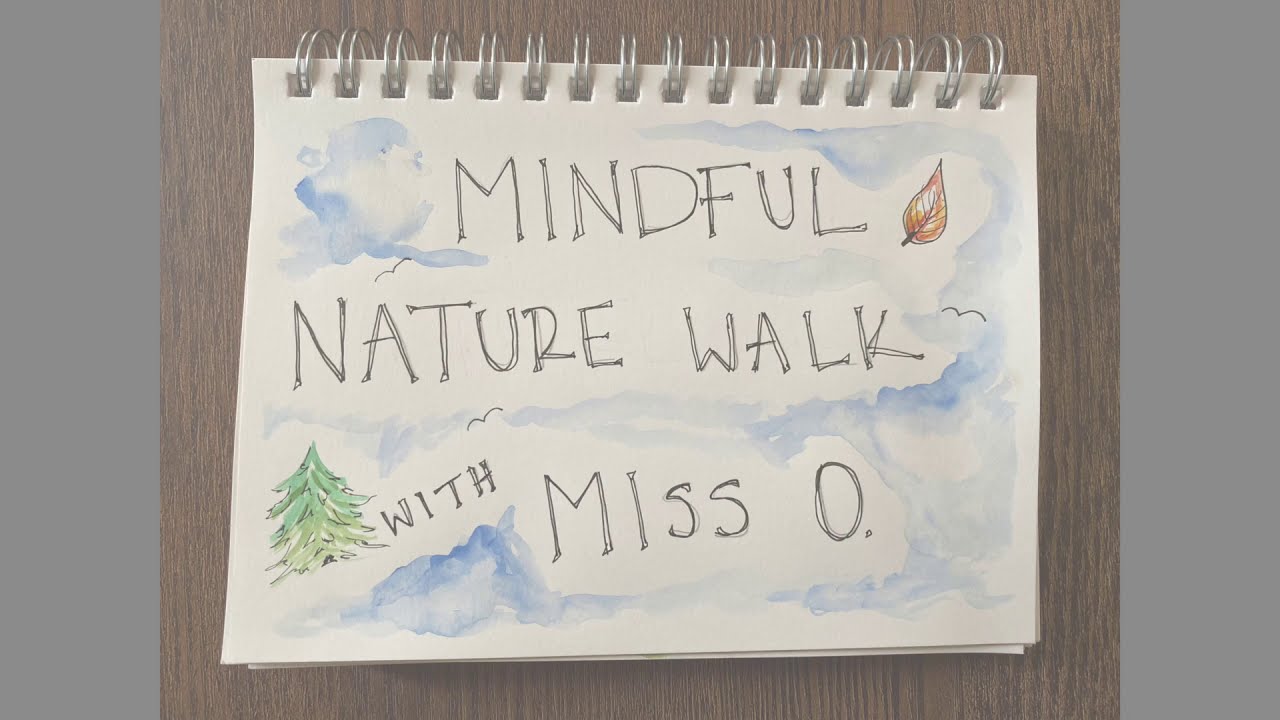 MINDFUL
NATURE WALK
WITH MISS O.